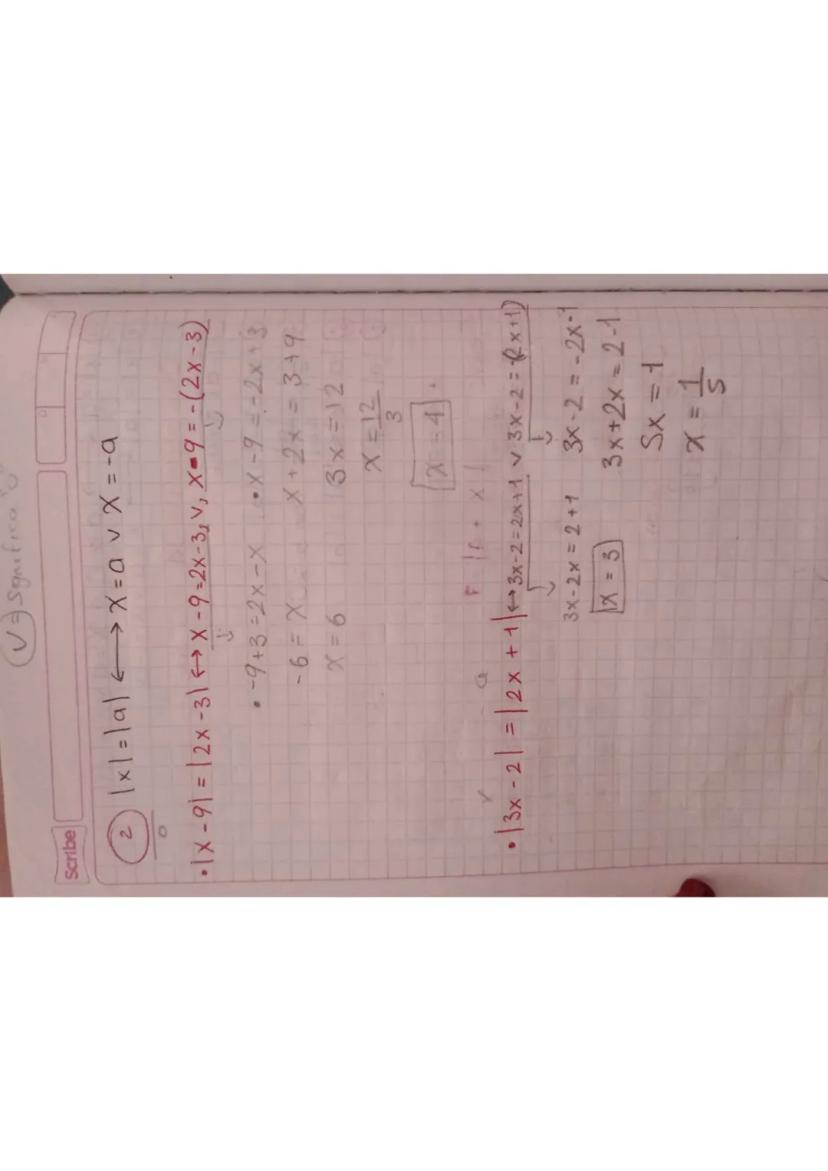 (V) => Significa "o"
Scribe
② |x| = |a| ⟷ x = a v x = -a
• |x - 9| = |2x - 3| ↔ x - 9 = 2x - 3, v, x - 9 = -(2x - 3)
• -9 + 3 = 2x - x • x - 9 = -2x + 3
-6 = x x + 2x = 3 + 9
x = 6 3x = 12
x = 12/3
x = 4
• |3x - 2| = |2x + 1| ↔ 3x - 2 = 2x + 1 v 3x - 2 = -(2x + 1)
3x - 2x = 2 + 1 3x - 2 = -2x - 1
x = 3 3x + 2x = 2 - 1
5x = 1
x = 1/5